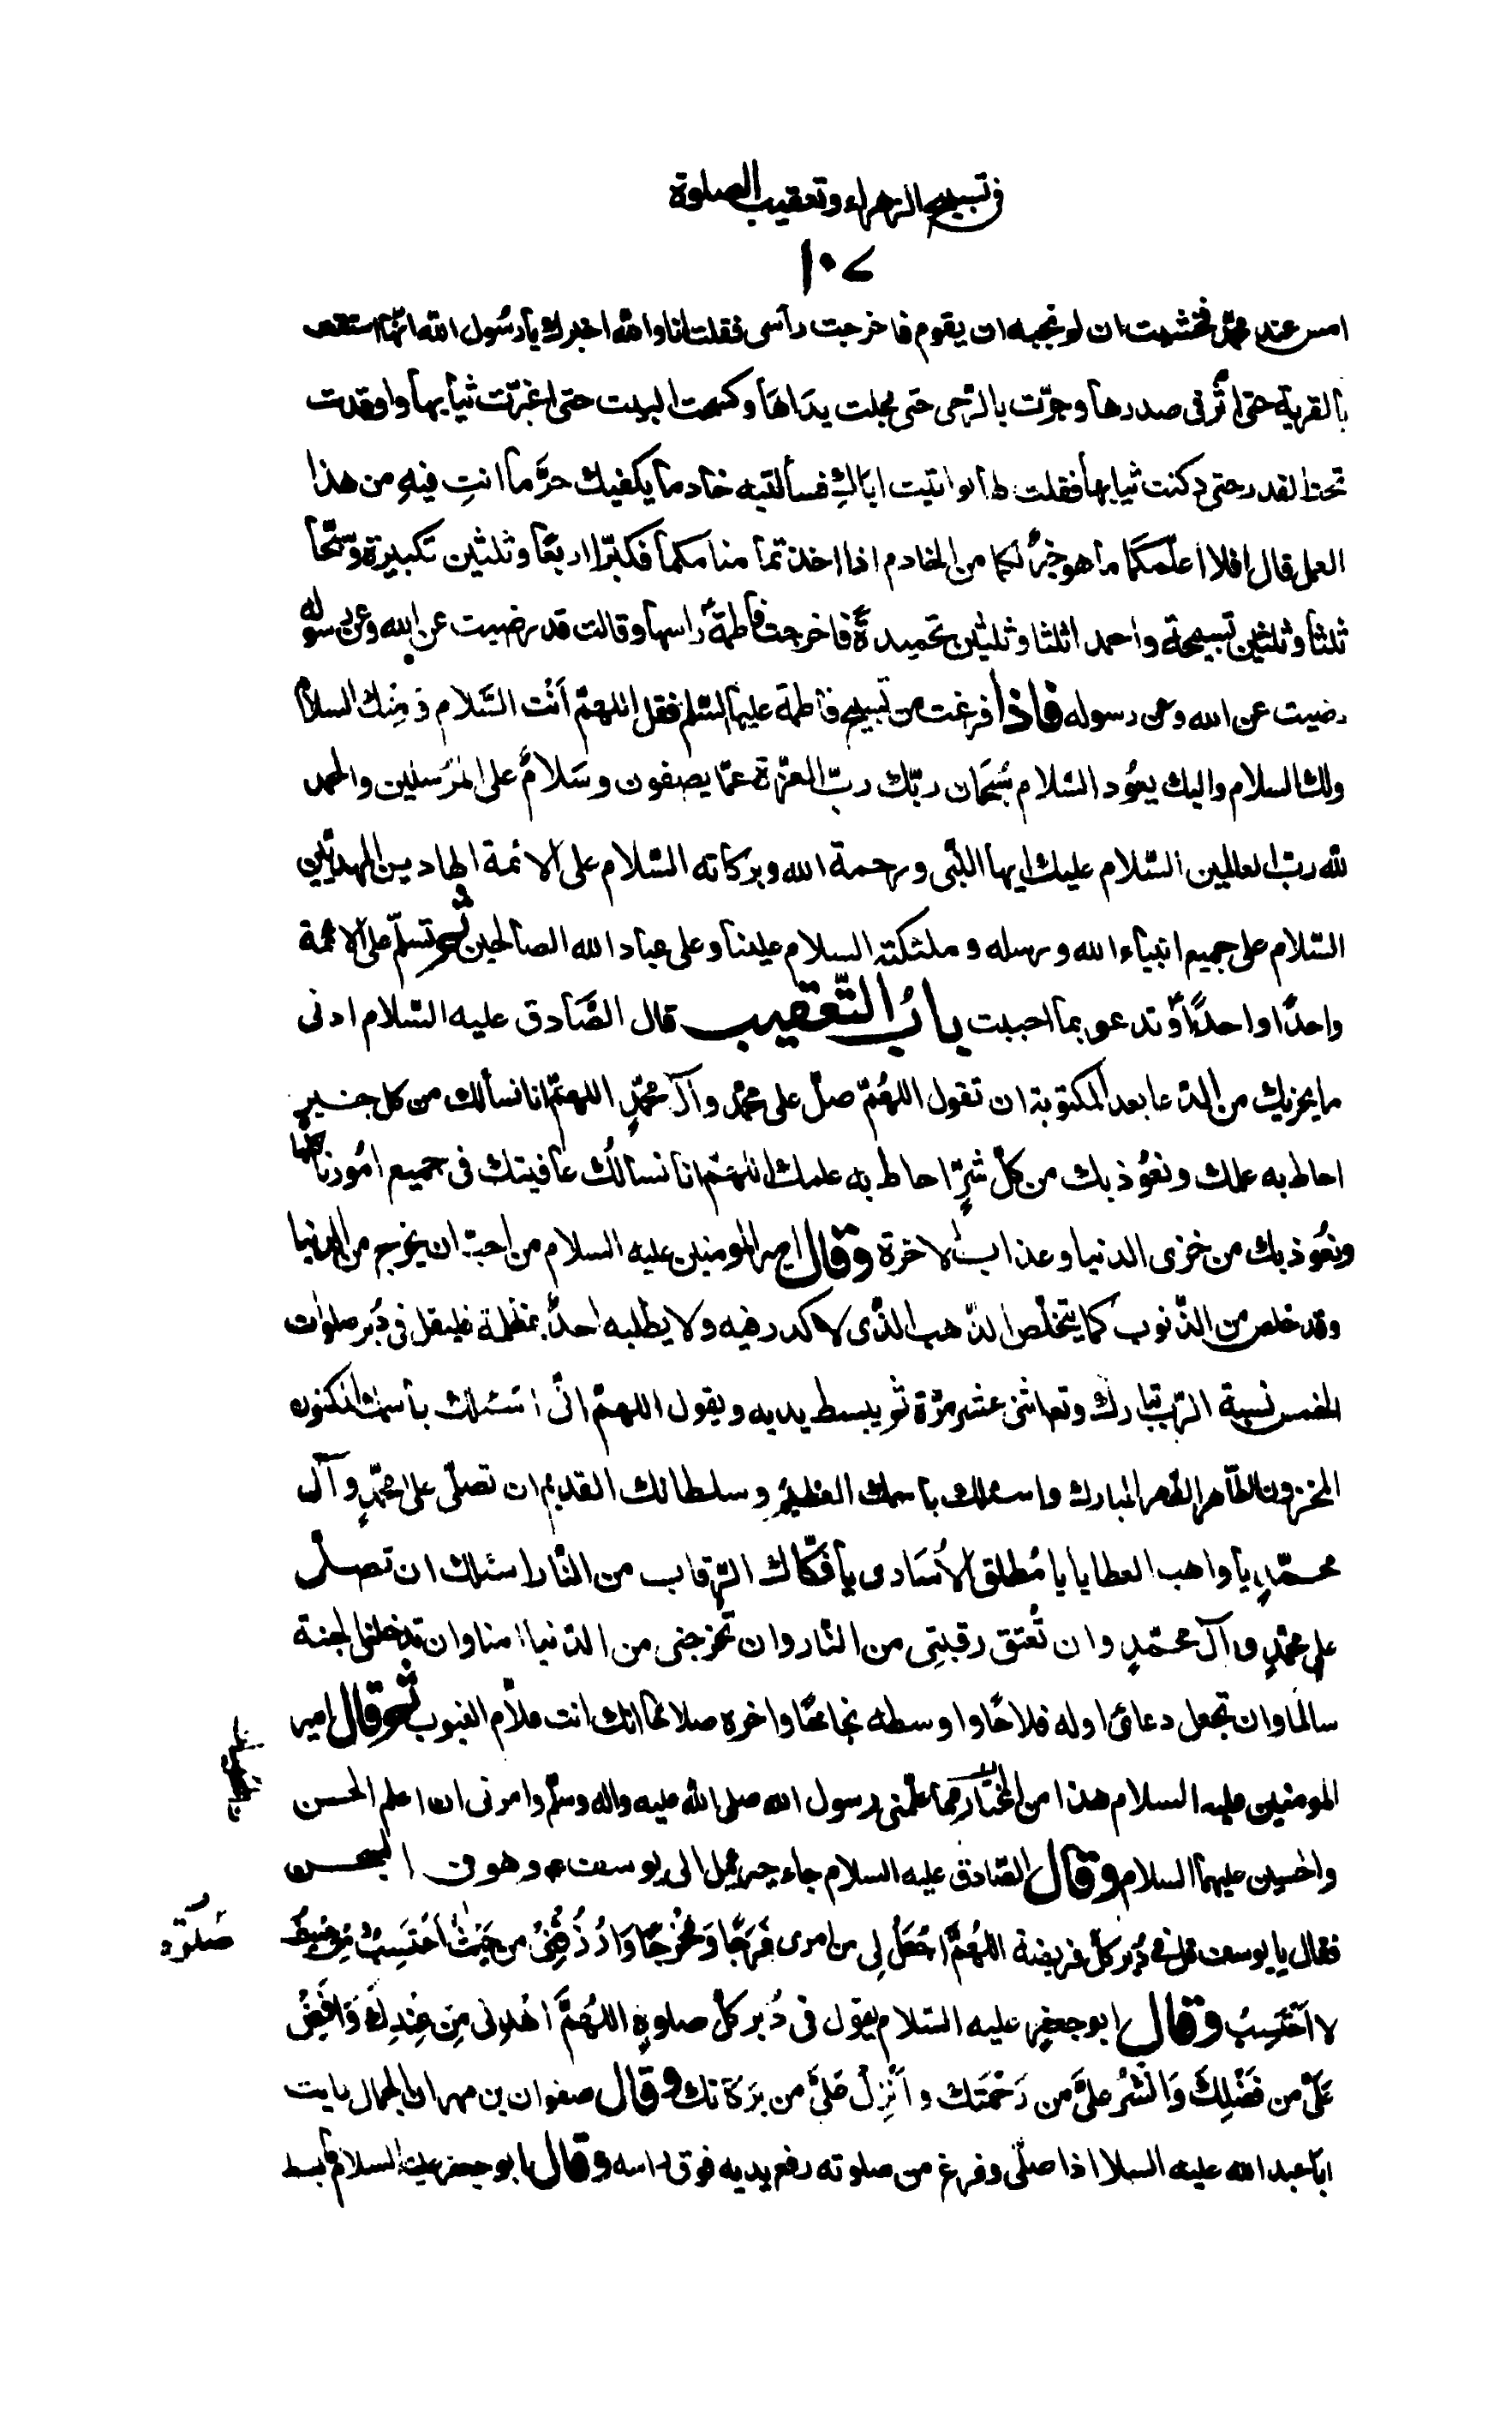 في تسبيح الزهراء وتعقيب الصلوة
١٠٧
امس عند محمّد فخشيت ان لو نجبه ان يقوم فاخرجت رأسى فقلت انا والله اخبرك يا رسُول الله انّها استقت
بالقربة حتى اثّر فى صدرها وجرّت بالرّحى حتى مجلت يدَاهَا وكسحت البيت حتى اغبرّت ثيابها واوقدت
تحت القدر حتى دكنت ثيابها فقلت لها لو اتيت اباكِ فسألتيه خادما يكفيك حرَّ ما انتِ فيهِ من هذا
العمل قال افلا اعلّمكمَا ما هو خيرٌ لكما من الخادم اذا اخذتما منامكما فكبّرا اربعًا وثلثين تكبيرة وسبّحا
ثلثا وثلثين تسبيحة واحمدا ثلثا وثلثين تحميدةً فاخرجت فاطمةُ راسها وقالت قد رضيت عن الله وعن رسوله
رضيت عن الله وعن رسوله فاذا فرغت من تسبيح فاطمة عليها السّلم فقل اللهمّ اَنْت السَّلام ومِنْك السلام
ولك السلام واليك يعُود السّلام سُبحَان ربّك ربّ العزّة عمّا يصفون وسَلامٌ على المرْسَلين والحمد
لله ربّ العالمين السّلام عليك ايها النّبى ورحمة الله وبركاته السّلام على الائمة الهادين المهديّين
السّلام على جميع انبياء الله ورسله وملئكته السلام علينا وعلى عباد الله الصالحين ثم تسلّم على الائمة
واحدًا واحدًا وتدعو بما احببت بابُ التّعقيب قال الصَّادق عليه السّلام ادنى
ما يجزيك من الدّعا بعد المكتوبة ان تقول اللهُمّ صلّ على محمّد وآل محمّدٍ اللهمّ انا نسألك من كل خيرٍ
احاط به علمك ونعُوذ بك من كلّ شرٍّ احاط به علمك اللهمّ انا نسالُك عافيتك فى جميع امُورنا كلها
ونعُوذ بك من خزى الدنيا وعذاب الاخرة وقال امير المومنين عليه السلام من احبّ ان يخرج من الدنيا
وقد خلص من الذّنوب كما يتخلّص الذّهب الذّى لا كدر فيه ولا يطلبه احدٌ بمظلمة فليقل فى دُبر صلوات
الخمس نسبة الرّب تبارك وتعا اثنى عشر مرّة ثم يبسط يديه ويقول اللهمّ انّى اسئلك باسمك المكنون
المخزون الطّاهر الطّهر المبارك واسئلك باسمك العظيم وسلطانك القديم ان تصلّى على محمّدٍ وآل
محمّدٍ يا واهب العطايا يا مُطلق الاُسَارى يا فكّاك الرّقاب من النّار اسئلك ان تصلّى
على محمّدٍ وآل محمّدٍ وان تُعتق رقبتِى من النّار وان تخرجنى من الدّنيا امنا وان تدخلنى الجنة
سالما وان تجعل دعائى اوله فلاحًا واوسطه نجاحًا واخره صلاحًا انك انت علاّم الغيوب ثم قال امير
المومنين عليه السلام هذا من المختار ممّا علّمنى رسول الله صلى الله عليه واله وسلّم وامرنى ان اعلم الحسن
والحسين عليهما السلام وقال الصّادق عليه السلام جاء جبرئيل الى يوسف وهو فى السجن
فقال يا يوسف قل فى دُبر كلّ فريضة اللهُمَّ اجْعَلْ لِى من امرى فَرَجًا وَمَخْرَجًا وَارْزُقْنِى من حَيْثُ اَحْتَسِبُ ومن حَيْثُ
صَلوٰة
لا اَحْتَسِبُ وقال ابو جعفرٍ عليه السّلام يقول فى دُبر كلّ صلوةٍ اللهُمَّ اهْدِنى مِنْ عِنْدِكَ وَاَفِضْ
عَلَىّ من فَضْلِكَ وَانْشُرْ علَىَّ من رَحْمَتك واَنْزِلْ عَلىَّ من بَرَكَاتك وقال صفوان بن مهران الجمال رايت
ابا عبد الله عليه السلا اذا صلّى وفرغ من صلوته رفع يديه فوق راسه وقال ابو جعفر عليه السلام ما بسط